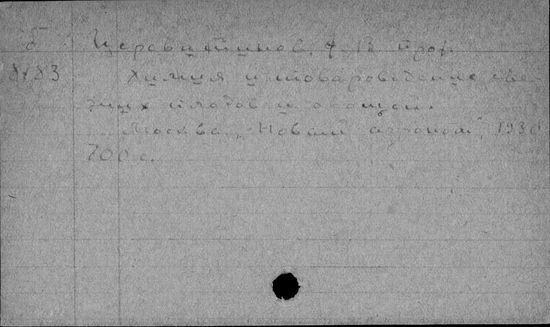 б Церевитинов, Ф. В. проф.
8783 Химия и товароведение све-
жих плодов и овощей.
Москва, "Новый агроном", 1930
700 с.